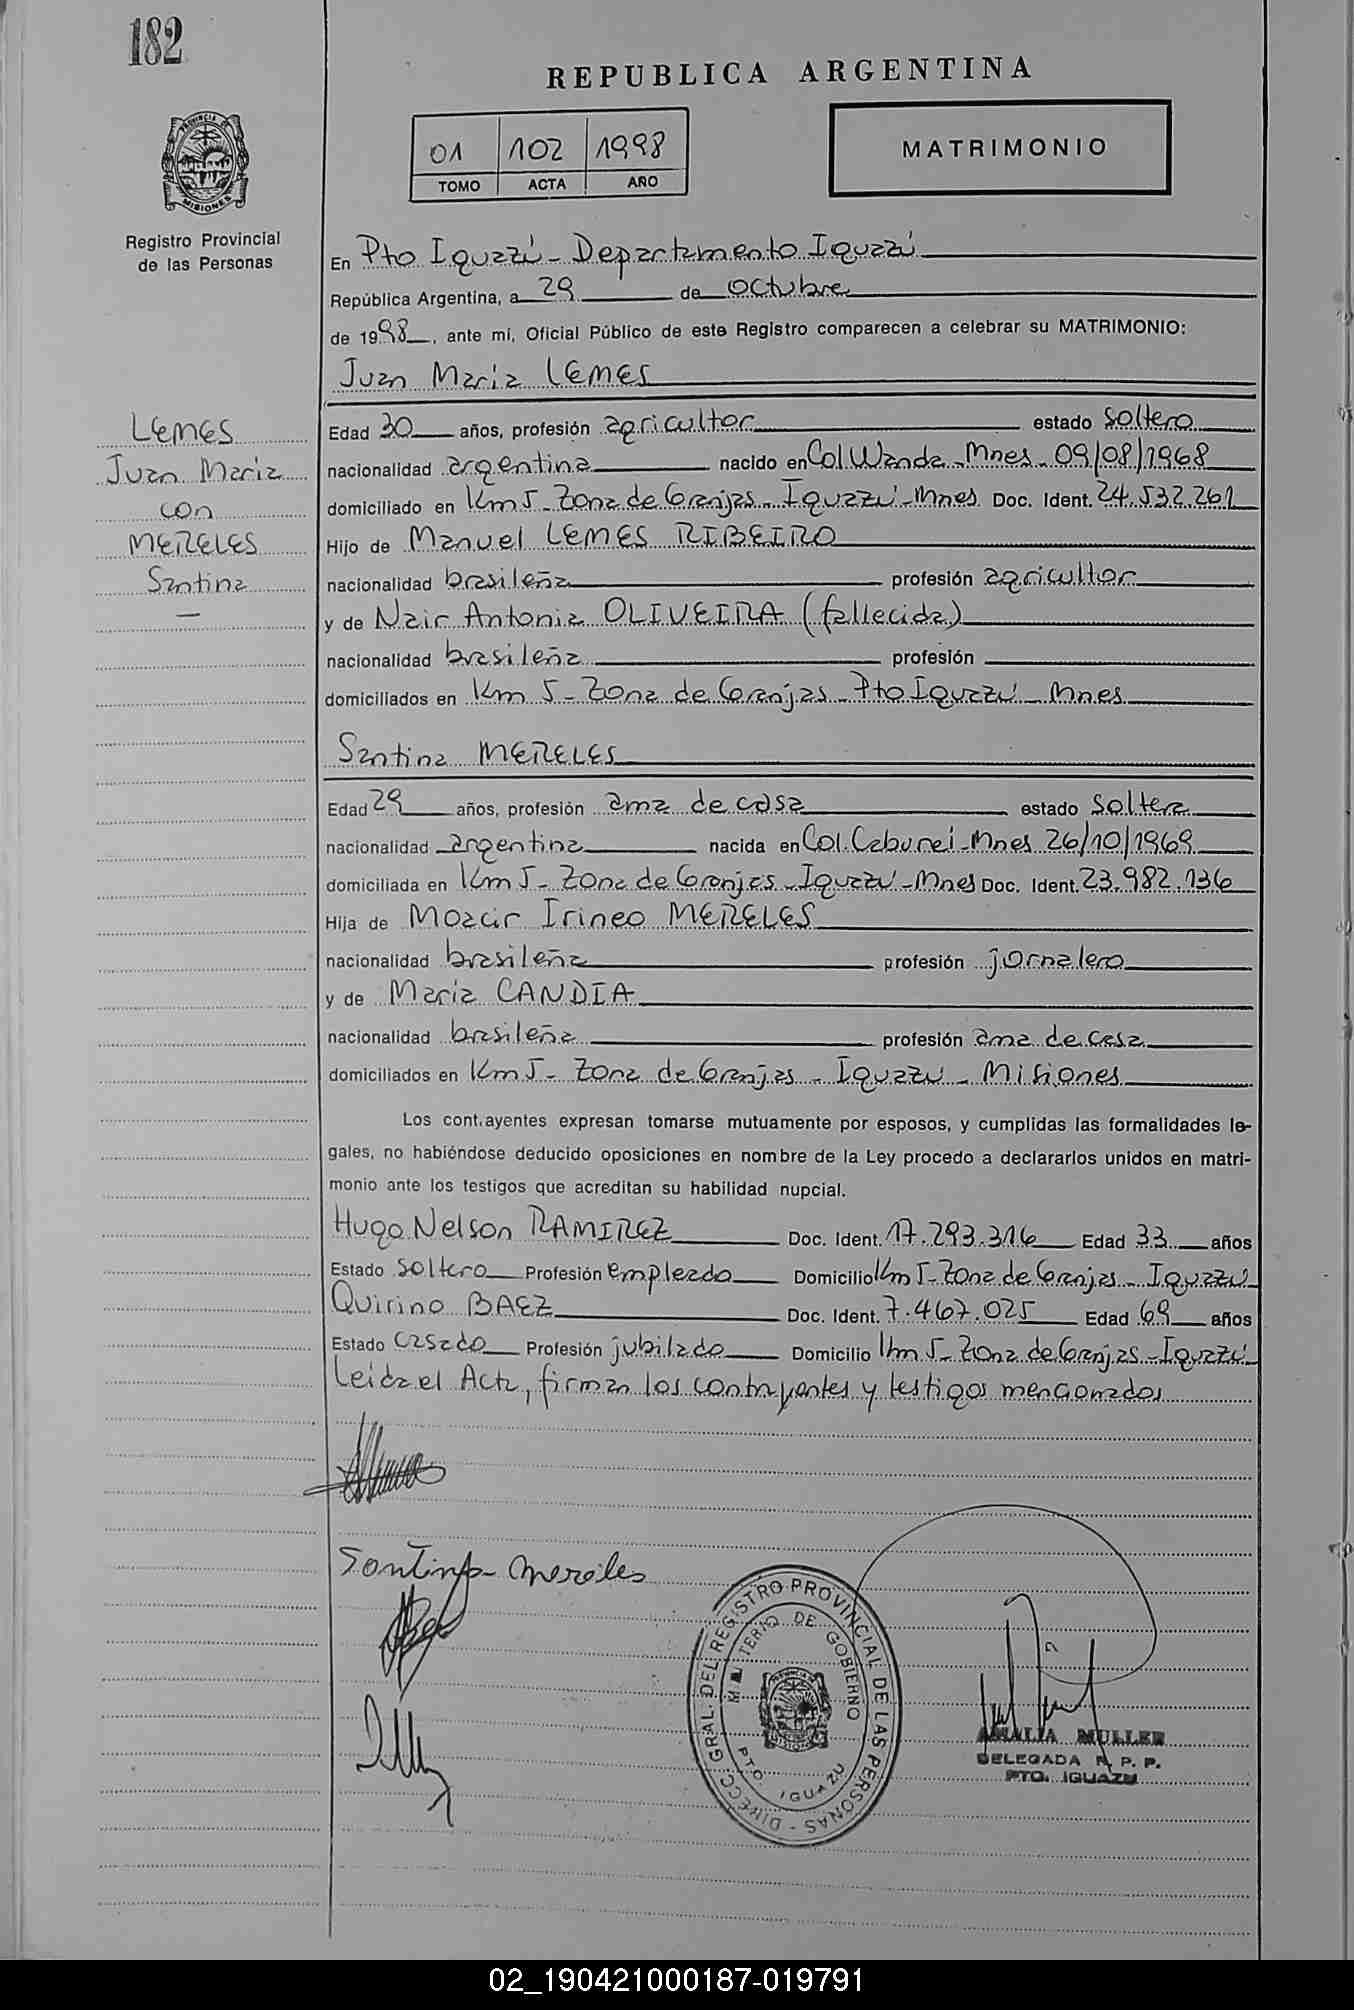 182
REPUBLICA ARGENTINA
01 102 1998
TOMO ACTA AÑO
MATRIMONIO
PROVINCIA DE
MISIONES
Registro Provincial
de las Personas
En Pto Iguazú - Departamento Iguazú
República Argentina, a 29 de Octubre
de 1998, ante mi, Oficial Público de este Registro comparecen a celebrar su MATRIMONIO:
Juan Maria LEMES
LEMES
Juan Maria
con
MERELES
Santina
—
Edad 30 años, profesión agricultor estado soltero
nacionalidad argentina nacido en Col Wanda - Mnes - 09/08/1968
domiciliado en Km 5 - Zona de Granjas - Iguazú - Mnes Doc. Ident. 24.532.261
Hijo de Manuel LEMES RIBEIRO
nacionalidad brasileña profesión agricultor
y de Nair Antonia OLIVEIRA (fallecida)
nacionalidad brasileña profesión
domiciliados en Km 5 - Zona de Granjas - Pto Iguazú - Mnes
Santina MERELES
Edad 29 años, profesión ama de casa estado soltera
nacionalidad argentina nacida en Col. Caburei - Mnes 26/10/1969
domiciliada en Km 5 - Zona de Granjas - Iguazú - Mnes Doc. Ident. 23.982.136
Hija de Moacir Irineo MERELES
nacionalidad brasileña profesión jornalero
y de Maria CANDIA
nacionalidad brasileña profesión ama de casa
domiciliados en Km 5 - Zona de Granjas - Iguazú - Misiones
Los cont.ayentes expresan tomarse mutuamente por esposos, y cumplidas las formalidades le-
gales, no habiéndose deducido oposiciones en nombre de la Ley procedo a declararlos unidos en matri-
monio ante los testigos que acreditan su habilidad nupcial.
Hugo Nelson RAMIREZ Doc. Ident. 17.293.316 Edad 33 años
Estado soltero Profesión empleado Domicilio Km 5 - Zona de Granjas - Iguazú
Quirino BAEZ Doc. Ident. 7.467.025 Edad 69 años
Estado casado Profesión jubilado Domicilio Km 5 - Zona de Granjas - Iguazú
Leida el Acta, firman los contrayentes y testigos mencionados
Santina Mereles
DIRECC. GRAL. DEL REGISTRO PROVINCIAL DE LAS PERSONAS -
DE GOBIERNO
PTO. IGUAZU
AMALIA MULLER
DELEGADA R. P. P.
PTO. IGUAZU
02_190421000187-019791